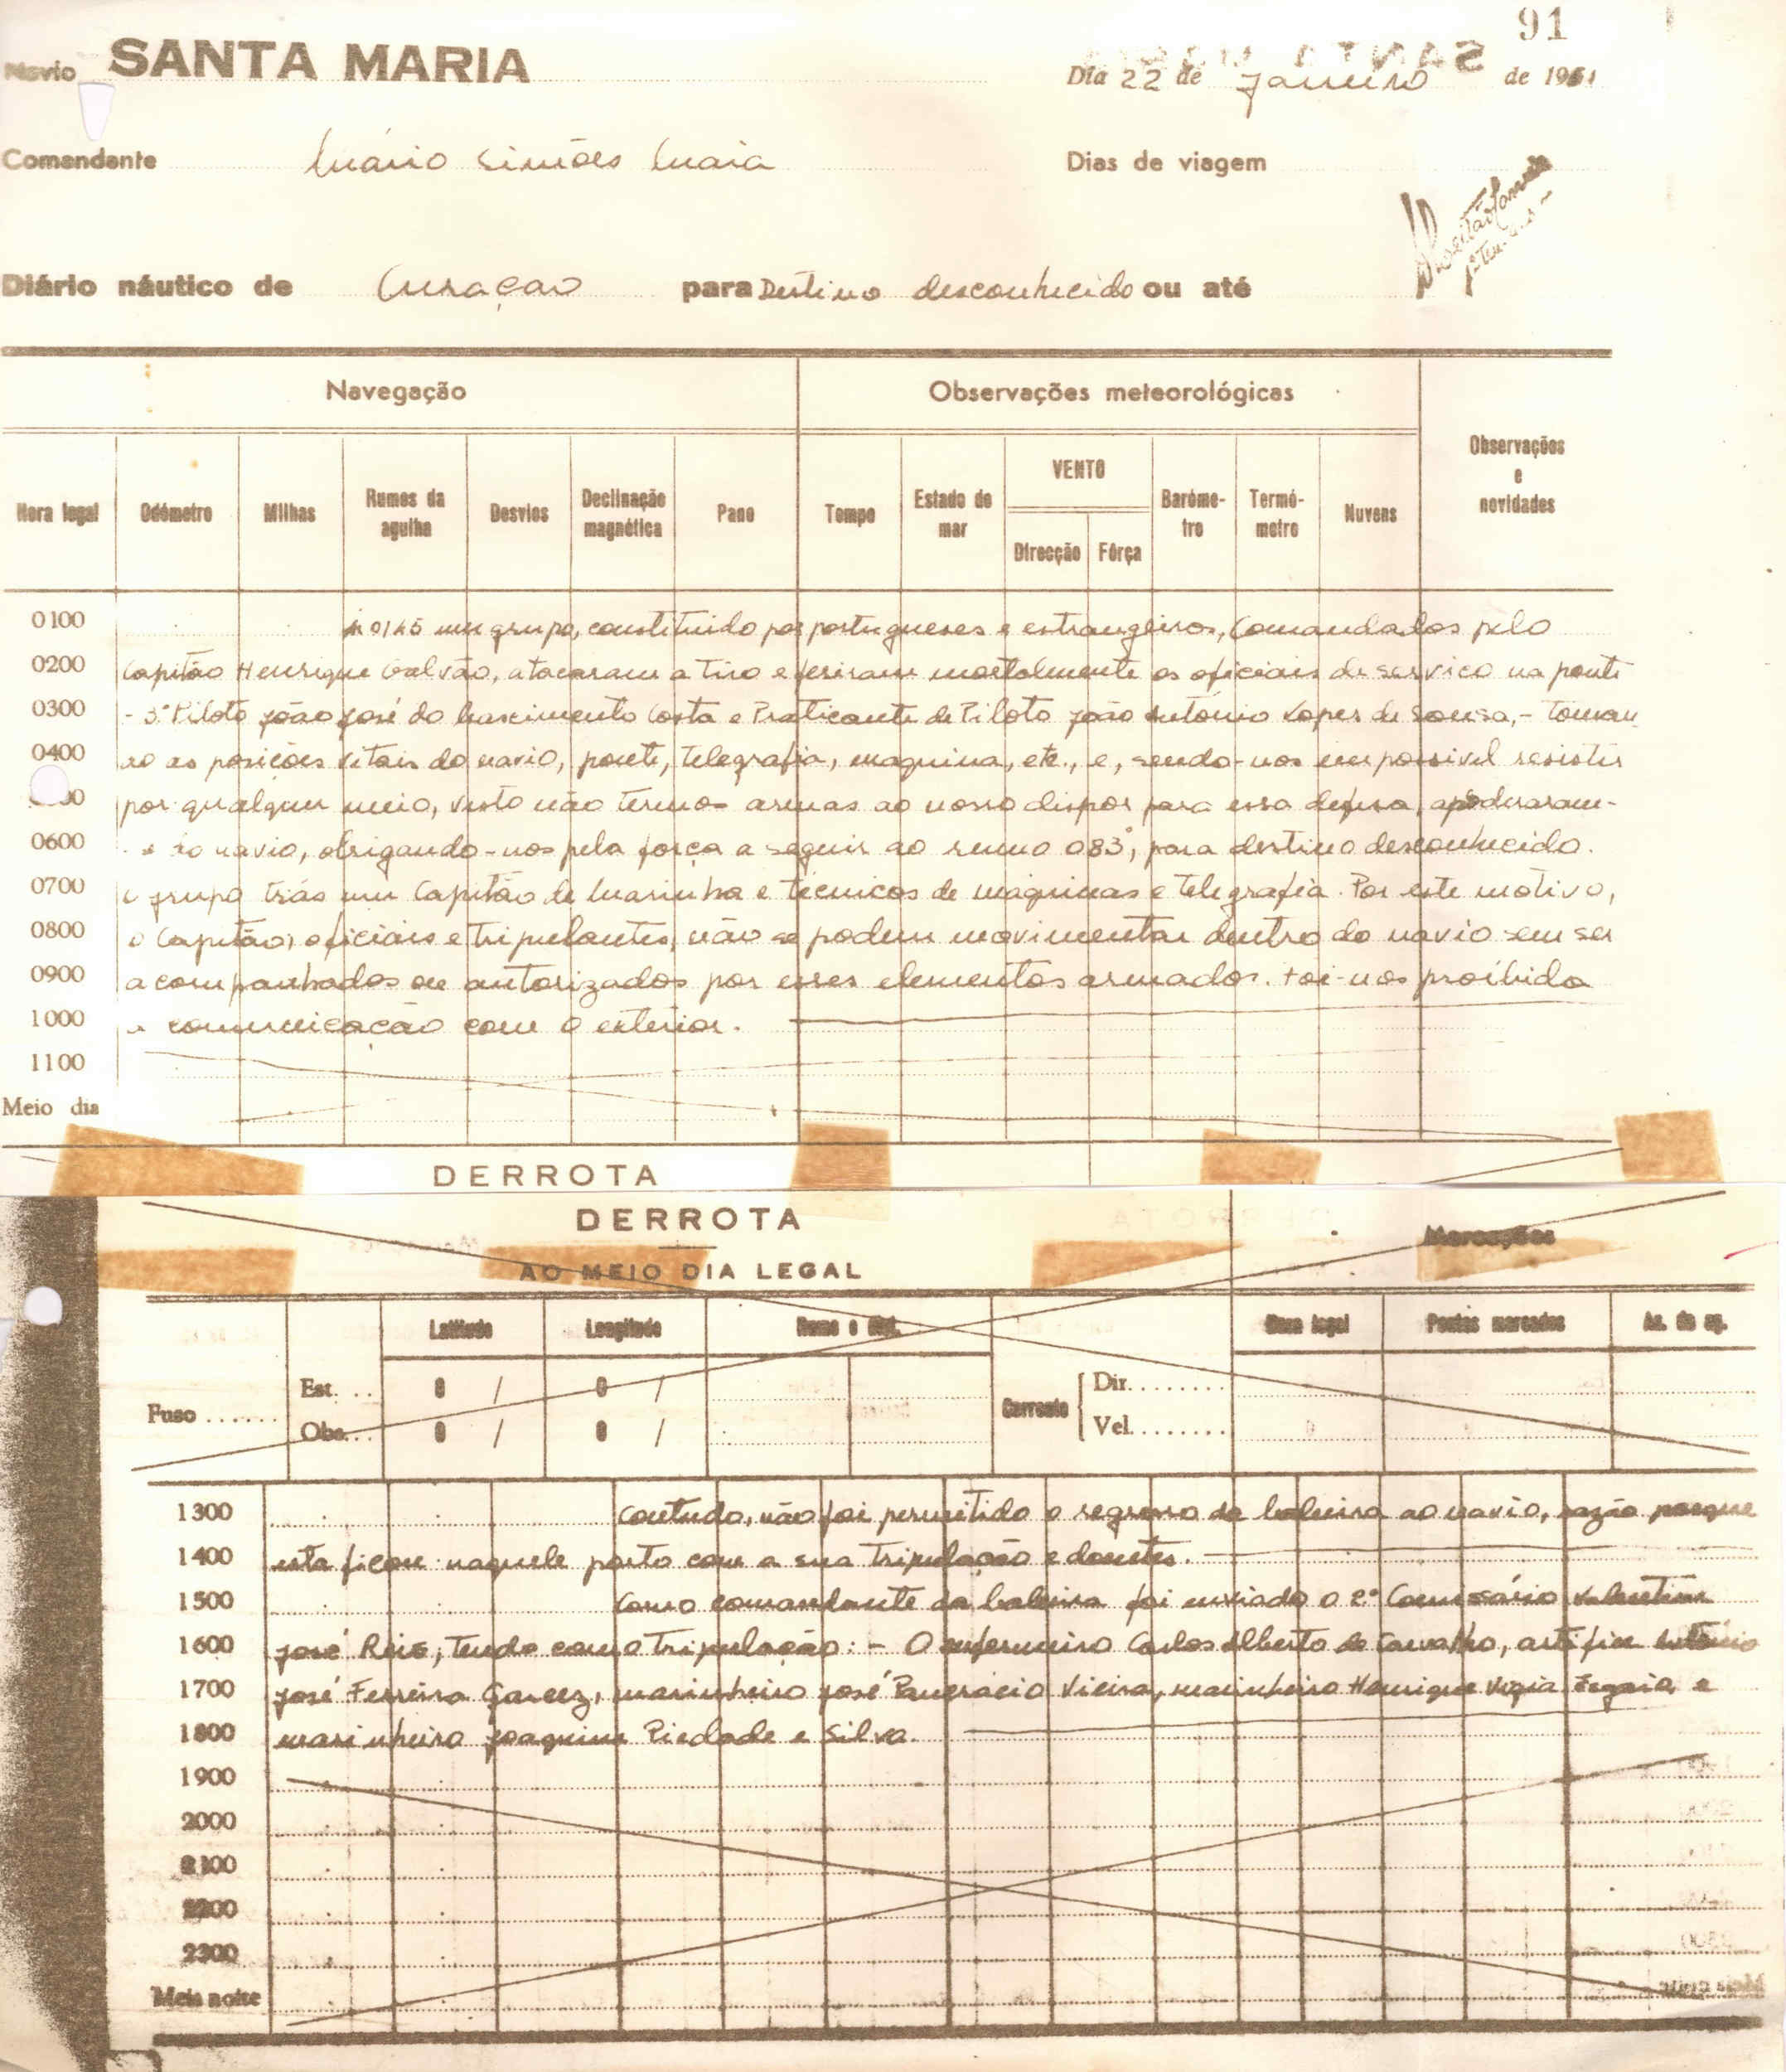 91
Navio SANTA MARIA
Dia 22 de Janeiro de 1961
Comandante Mário Simões Maia
Dias de viagem
Diário náutico de Curaçao para Destino desconhecido ou até
Navegação
Observações meteorológicas
Observações e novidades
Hora legal
Odómetro
Milhas
Rumos da agulha
Desvios
Declinação magnética
Pano
Tempo
Estado do mar
VENTO
Direcção
Fôrça
Baróme-tro
Termó-metro
Nuvens
0100 às 0145 um grupo, constituido por portugueses e estrangeiros, comandados pelo
0200 Capitão Henrique Galvão, atacaram a tiro e feriram mortalmente os oficiais de serviço na ponte
0300 - 3º Piloto João José do Nascimento Costa e Praticante de Piloto João António Lopes de Sousa, - toman
0400 do as posições vitais do navio, ponte, telegrafia, maquina, etc., e, sendo-nos impossivel resistir
por qualquer meio, visto não termos armas ao nosso dispor para essa defesa, apoderaram-
0600 se do navio, obrigando-nos pela força a seguir ao rumo 083°, para destino desconhecido.
0700 O grupo trás um Capitão de Marinha e técnicos de máquinas e telegrafia. Por este motivo,
0800 o Capitão, oficiais e tripulantes, não se podem movimentar dentro do navio sem ser
0900 acompanhados ou autorizados por esses elementos armados. Foi-nos proíbida
1000 a comunicação com o exterior.
1100
Meio dia
DERROTA
DERROTA
AO MEIO DIA LEGAL
Marcações
Latitude
Longitude
Rumo e dist.
Hora legal
Pontos marcados
Az. da ag.
Fuso ......
Est. ...
0 /
0 /
Obs. ...
0 /
0 /
Corrente
Dir. .......
Vel. .......
1300 Contudo, não foi permitido o regresso da baleeira ao navio, razão porque
1400 esta ficou naquele porto com a sua tripulação e doentes.
1500 Como comandante da baleeira foi enviado o 2º Comissário Valentim
1600 José Reis, tendo como tripulação: - O enfermeiro Carlos Alberto de Carvalho, artífice António
1700 José Ferreira Garcez, marinheiro José Pancrácio Vieira, marinheiro Henrique Vigia e
1800 marinheiro Joaquim Piedade e Silva.
1900
2000
2100
2200
2300
Meia noite